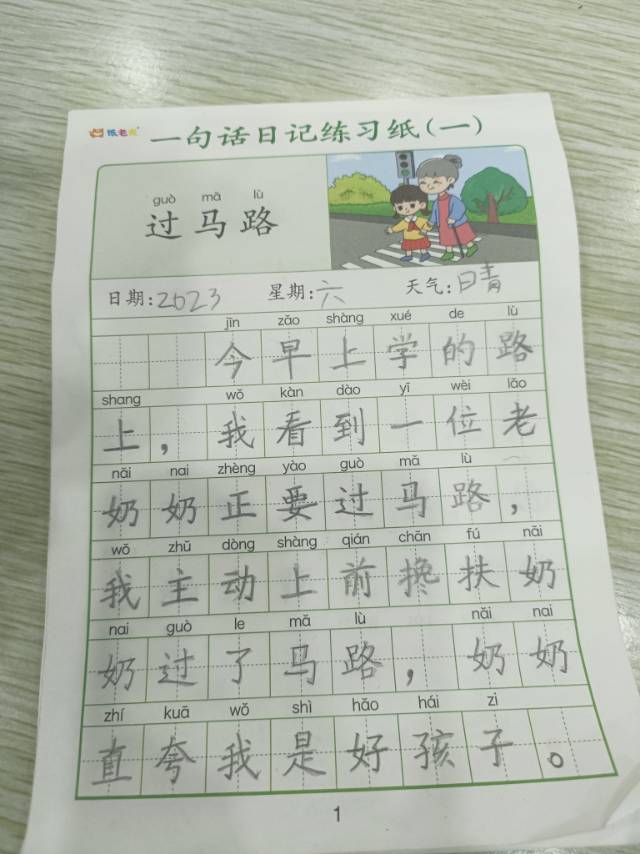 纸老虎
一句话日记练习纸(一)
guò mǎ lù
过马路
日期:2023 星期:六 天气:晴
jīn zǎo shàng xué de lù
今早上学的路
shang wǒ kàn dào yī wèi lǎo
上,我看到一位老
nǎi nai zhèng yào guò mǎ lù
奶奶正要过马路,
wǒ zhǔ dòng shàng qián chān fú nǎi
我主动上前搀扶奶
nai guò le mǎ lù nǎi nai
奶过了马路,奶奶
zhí kuā wǒ shì hǎo hái zi
直夸我是好孩子。
1